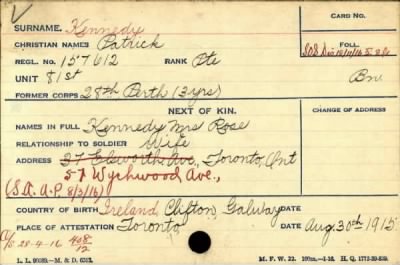 SURNAME. Kennedy CARD No.
CHRISTIAN NAMES Patrick FOLL.
REGL. No. 157612 RANK Pte
UNIT 81st
FORMER CORPS 28th Perth (3 yrs)
NEXT OF KIN. CHANGE OF ADDRESS
NAMES IN FULL Kennedy Mrs Rose
RELATIONSHIP TO SOLDIER Wife
ADDRESS 37 Ellsworth Ave, Toronto, Ont
57 Wychwood Ave.,
(S.A.A.P. 8/3/16)
COUNTRY OF BIRTH Ireland Clifton, Galway DATE
PLACE OF ATTESTATION Toronto DATE Aug. 30th 1915
28-4-16 408/12
M. F. W. 22